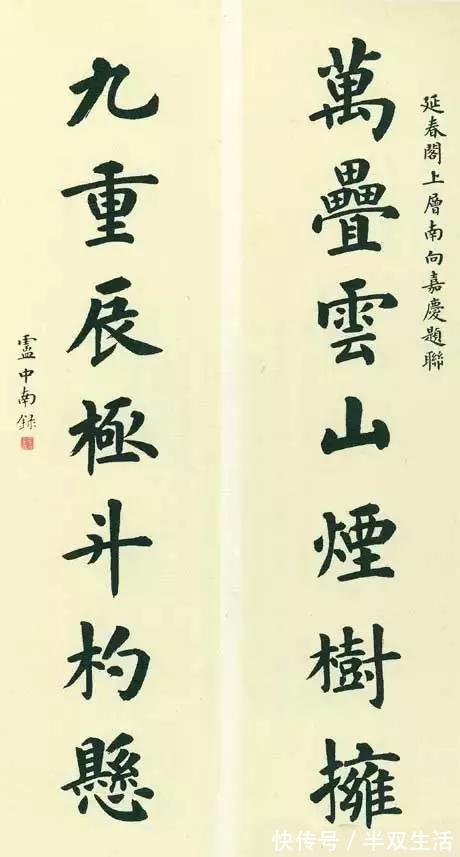 延春閣上層南向嘉慶題聯
萬疊雲山煙樹擁
九重辰極斗杓懸
盧中南錄
快传号/半双生活